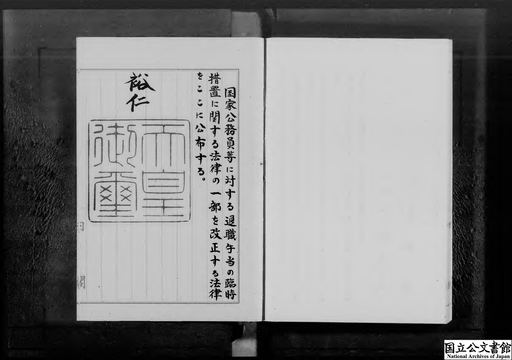 国家公務員等に対する退職手当の臨時
措置に関する法律の一部を改正する法律
をここに公布する。
裕仁
天皇
御璽
国立公文書館
National Archives of Japan